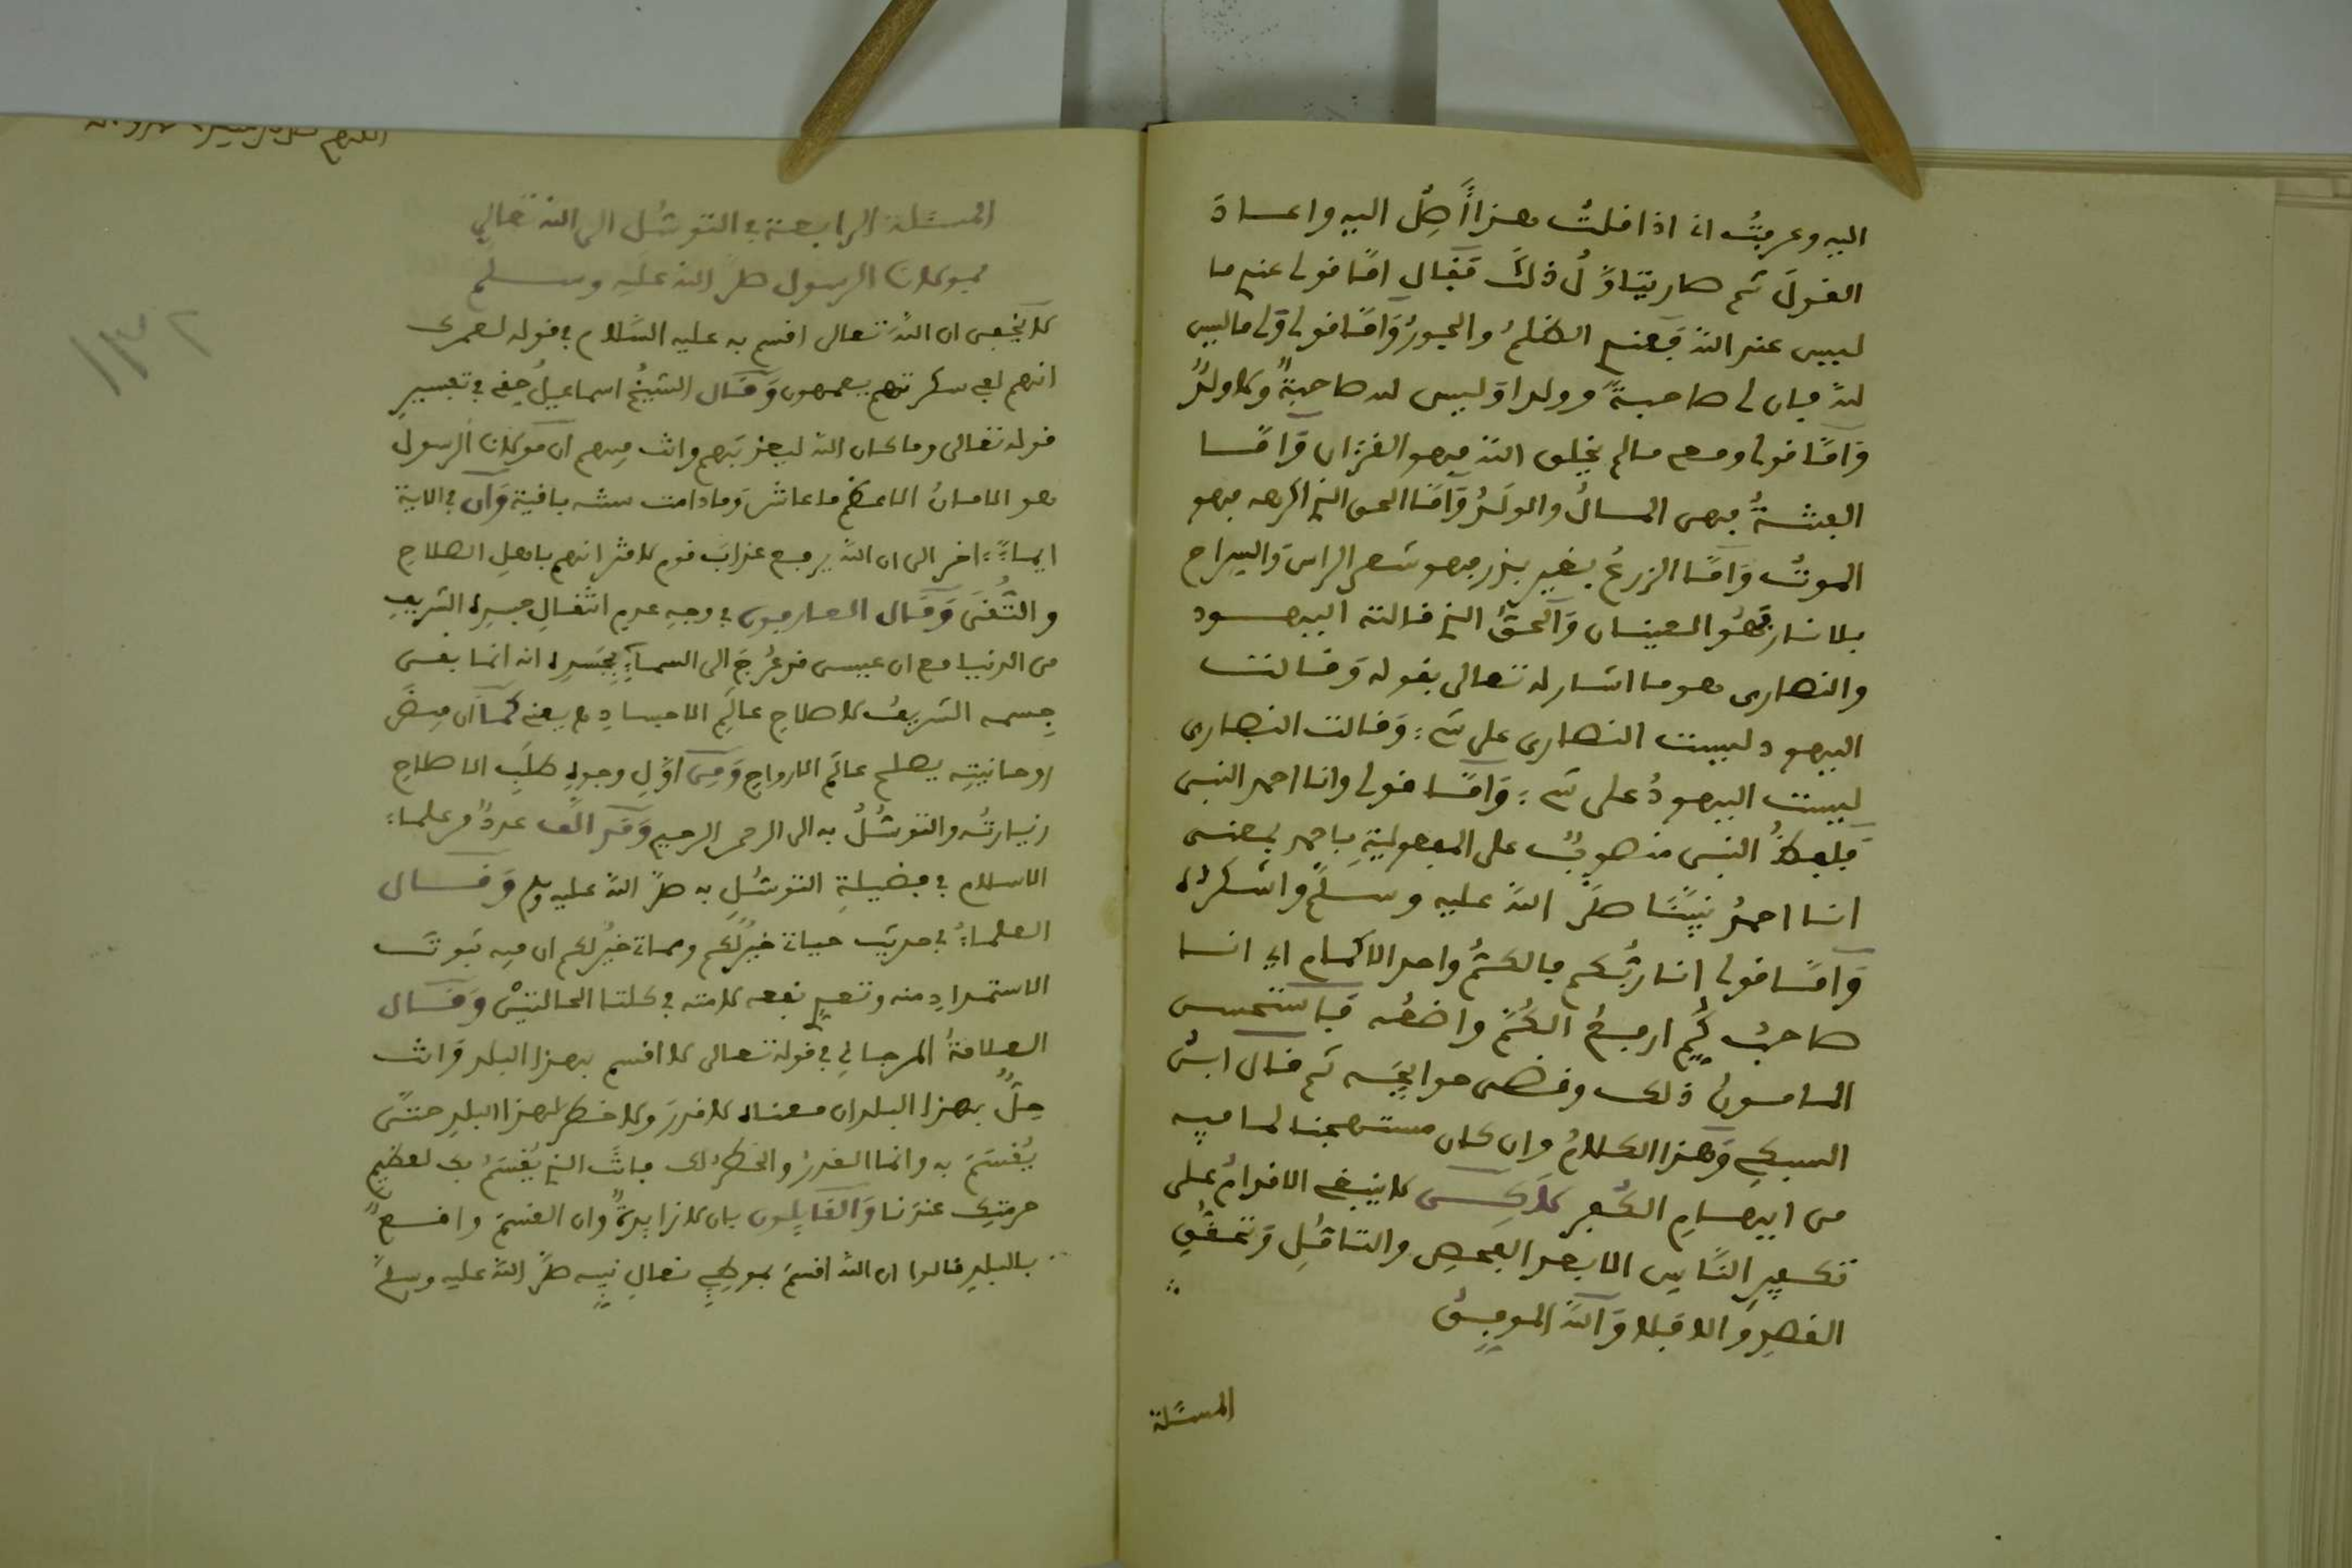 اليه وعرفتُ اني اذا قلتُ هذا أَصِلُ اليه واعاد
القولَ ثم صار يتاوَّلُ ذلكَ فقال امَّا قولي عندي ما
ليس عند اللّه فعندي الظلمُ والجورُ وَامَّا قولي ولي ما ليس
للّه فان لي صاحبةً وولدا وليس له صاحبةٌ ولا ولدٌ
وَامَّا قولي ومعي مالم يخلق اللّه فهو القرءان وَامَّا
الفتنةُ فهي المالُ والولدُ وَامَّا الحق الذي اكرهه فهو
الموتُ وَامَّا الزرعُ بغير بذر فهو شعر الراس وَالسراج
بلا نار فهُو العينان وَالحقُّ الذي قالته اليهود
والنصارى هو ما اشار له تعالى بقوله وَقالت
اليهود ليست النصارى على شيء وَقالت النصارى
ليست اليهودُ على شيء وَامَّا قولي وانا احمد النبي
فلفظُ النبي منصوبٌ على المفعوليةِ باحمد بمعنى
انا احمدُ نبيَّنا صلى اللّه عليه وسلَّم واشكرُه
وَامَّا قولي انا ربُّكم فالكُمُّ واحد الاكمام اي انا
صاحبُ كُمٍّ ارفعُ الكُمَّ واضعُه فاستحسن
المامونُ ذلك وقضى حوايجَه ثم قال ابنُ
السبكي وَهذا الكلامُ وان كان مستهجنا لما فيه
من ايهامِ الكُفرِ لاكن لا ينبغي الاقدامُ على
تكفيرِ النَّاسِ الا بعد الفحصِ والتامُّلِ وَتحقُّقِ
القصدِ والا فلا وَاللّه الموفقُ
المسئلة
المسئلة الرابعة في التوسُّل الى اللّه تعالى
بمولانا الرسول صلى اللّه عليه وسلم
لا يخفى ان اللّه تعالى اقسم به عليه السَّلام في قوله لعمرك
انهم لفي سكرتهم يعمهون وَقال الشيخُ اسماعيلُ حقي في تفسيرِ
قوله تعالى وما كان اللّه ليعذبَهم وانت فيهم ان مولانا الرسول
هو الامانُ الاعظم ما عاش وَما دامت سنته باقية وَان في الاية
ايماءً اخر الى ان اللّه يرفع عذابَ قوم لاقترانهم باهلِ الصلاحِ
والتُّقى وَقال العارفون في وجهِ عدمِ انتقالِ جسدِه الشريفِ
من الدنيا مع ان عيسى قد عُرجَ الى السماءِ بجَسدِه انه انما بقي
جِسمه الشريفُ لاصلاحِ عالَمِ الاجسادِ يعني كما ان فيضَ
روحانيتِه يصلح عالَمَ الارواحِ وَمِن اوَّلِ وجوهِ طلَبِ الاصلاحِ
زيارتُه والتوسُّلُ به الى الرحمن الرحيم وَقد الَّف عددٌ من علماء
الاسلام في فضيلةِ التوسُّلِ به صلى اللّه عليه وسلم وَقال
العلماءُ في حديث حياتي خيرٌ لكم ومماتي خيرٌ لكم ان فيه ثبوتَ
الاستمدادِ منه وتعميم نفعه لامته في كلتا الحالتيْن وَقال
العلامةُ المرجاني في قوله تعالى لا اقسم بهذا البلد وَانت
حِلٌّ بهذا البلد ان معناه لا قدرَ ولا خطر لهذا البلدِ حتَّى
يُقسَمَ به وانما القدرُ والخطرُ لك فانتَ الذي يُقسَمُ بك لعظيمِ
حرمتِك عندَنا وَالقايلون بان لا زايدةٌ وان القسمَ واقعٌ
بالبلدِ قالوا ان اللّه اقسمَ بموطِئِ نعالِ نبيه صلى اللّه عليه وسلَّم